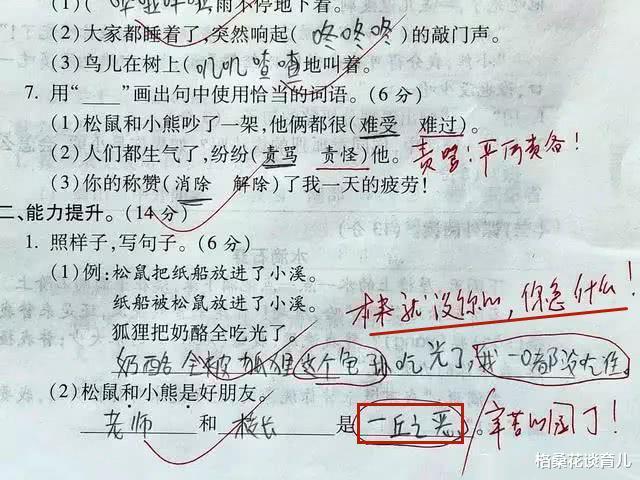 (1)(哗啦哗啦)雨不停地下着。
(2)大家都睡着了,突然响起(咚咚咚)的敲门声。
(3)鸟儿在树上(叽叽喳喳)地叫着。
7. 用“____”画出句中使用恰当的词语。(6分)
(1)松鼠和小熊吵了一架,他俩都很(难受 难过)。
(2)人们都生气了,纷纷(责骂 责怪)他。责骂:严厉责备!
(3)你的称赞(消除 解除)了我一天的疲劳!
二、能力提升。(14分)
1. 照样子,写句子。(6分)
(1)例:松鼠把纸船放进了小溪。
纸船被松鼠放进了小溪。
本来就没你的,你急什么!
狐狸把奶酪全吃光了。
奶酪全被狐狸这个龟孙吃光了,我一口都没吃住。
(2)松鼠和小熊是好朋友。
老师和校长是一丘之恶。辛苦的园丁!
格桑花谈育儿